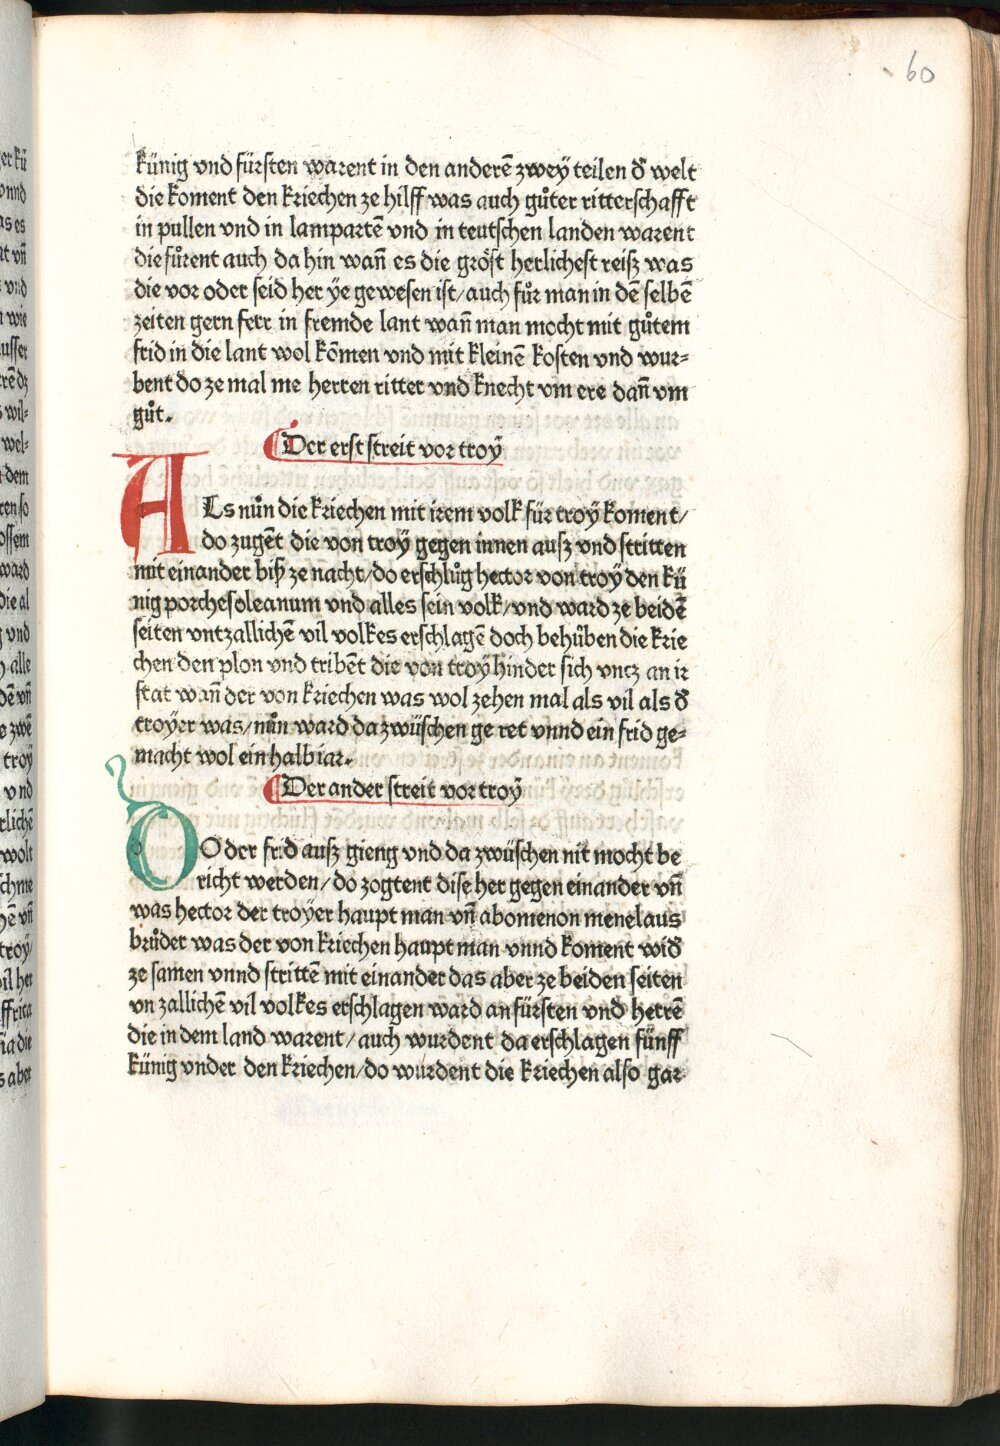 60
künig vnd fürsten warent in den anderē zweÿ teilen đ welt
die koment den kriechen ze hilff was auch gůter ritterschafft
in pullen vnd in lampartē vnd in teutschen landen warent
die fůrent auch da hin wañ es die gröst herlichest reisz was
die vor oder seid her ÿe gewesen ist/auch fůr man in dē selbē
zeiten gern ferr in fremde lant wañ man mocht mit gůtem
frid in die lant wol kōmen vnd mit kleinē kosten vnd wur=
bent do ze mal me herren ritter vnd knecht vm ere dañ vm
gůt.
¶Der erst streit vor troÿ
ALs nůn die kriechen mit irem volk für troÿ koment/
do zugēt die von troÿ gegen innen ausz vnd stritten
mit einander bisz ze nacht/do erschlůg hector von troÿ den kü
nig porchesoleanum vnd alles sein volk/vnd ward ze beidē
seiten vntzallichē vil volkes erschlagē doch behůben die krie
chen den plon vnd tribēt die von troÿ hinder sich vntz an ir
stat wañ der von kriechen was wol zehen mal als vil als đ
troÿer was/nůn ward da zwüschen ge ret vnnd ein frid ge=
macht wol ein halb iar.
¶Der ander streit vor troÿ
DO der frid ausz gieng vnd da zwüschen nit mocht be
richt werden/do zogtent dise her gegen einander vñ
was hector der troÿer haupt man vñ abomenon menelaus
brůder was der von kriechen haupt man vnnd koment widđ
ze samen vnnd strittē mit einander das aber ze beiden seiten
vn zallichē vil volkes erschlagen ward an fürsten vnd herrē
die in dem land warent/auch wurdent da erschlagen fünff
künig vnder den kriechen/do wurdent die kriechen also gar